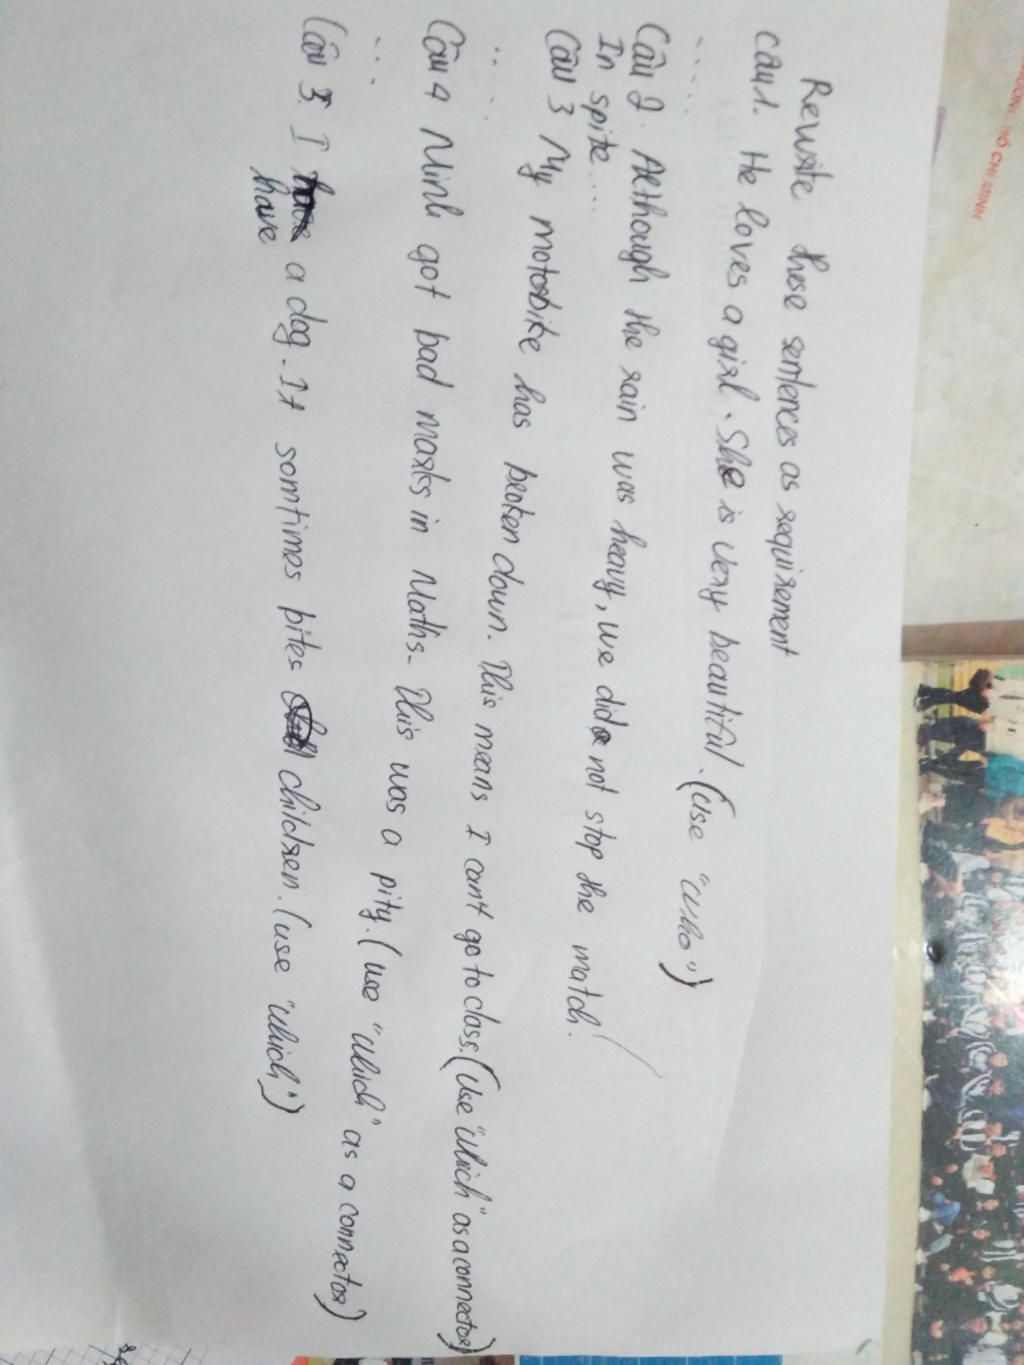 Rewrite these sentences as requirement
câu 1. He loves a girl. She is very beautiful. (use "who")
.....
Câu 2. Although the rain was heavy, we did not stop the match.
In spite.....
Câu 3 My motorbike has broken down. This means I can't go to class. (Use "which" as a connector)
.....
Câu 4 Minh got bad marks in Maths. This was a pity. (use "which" as a connector)
....
Câu 5. I a dog. It somtimes bites children. (use "which")
have
HỒ CHÍ MINH